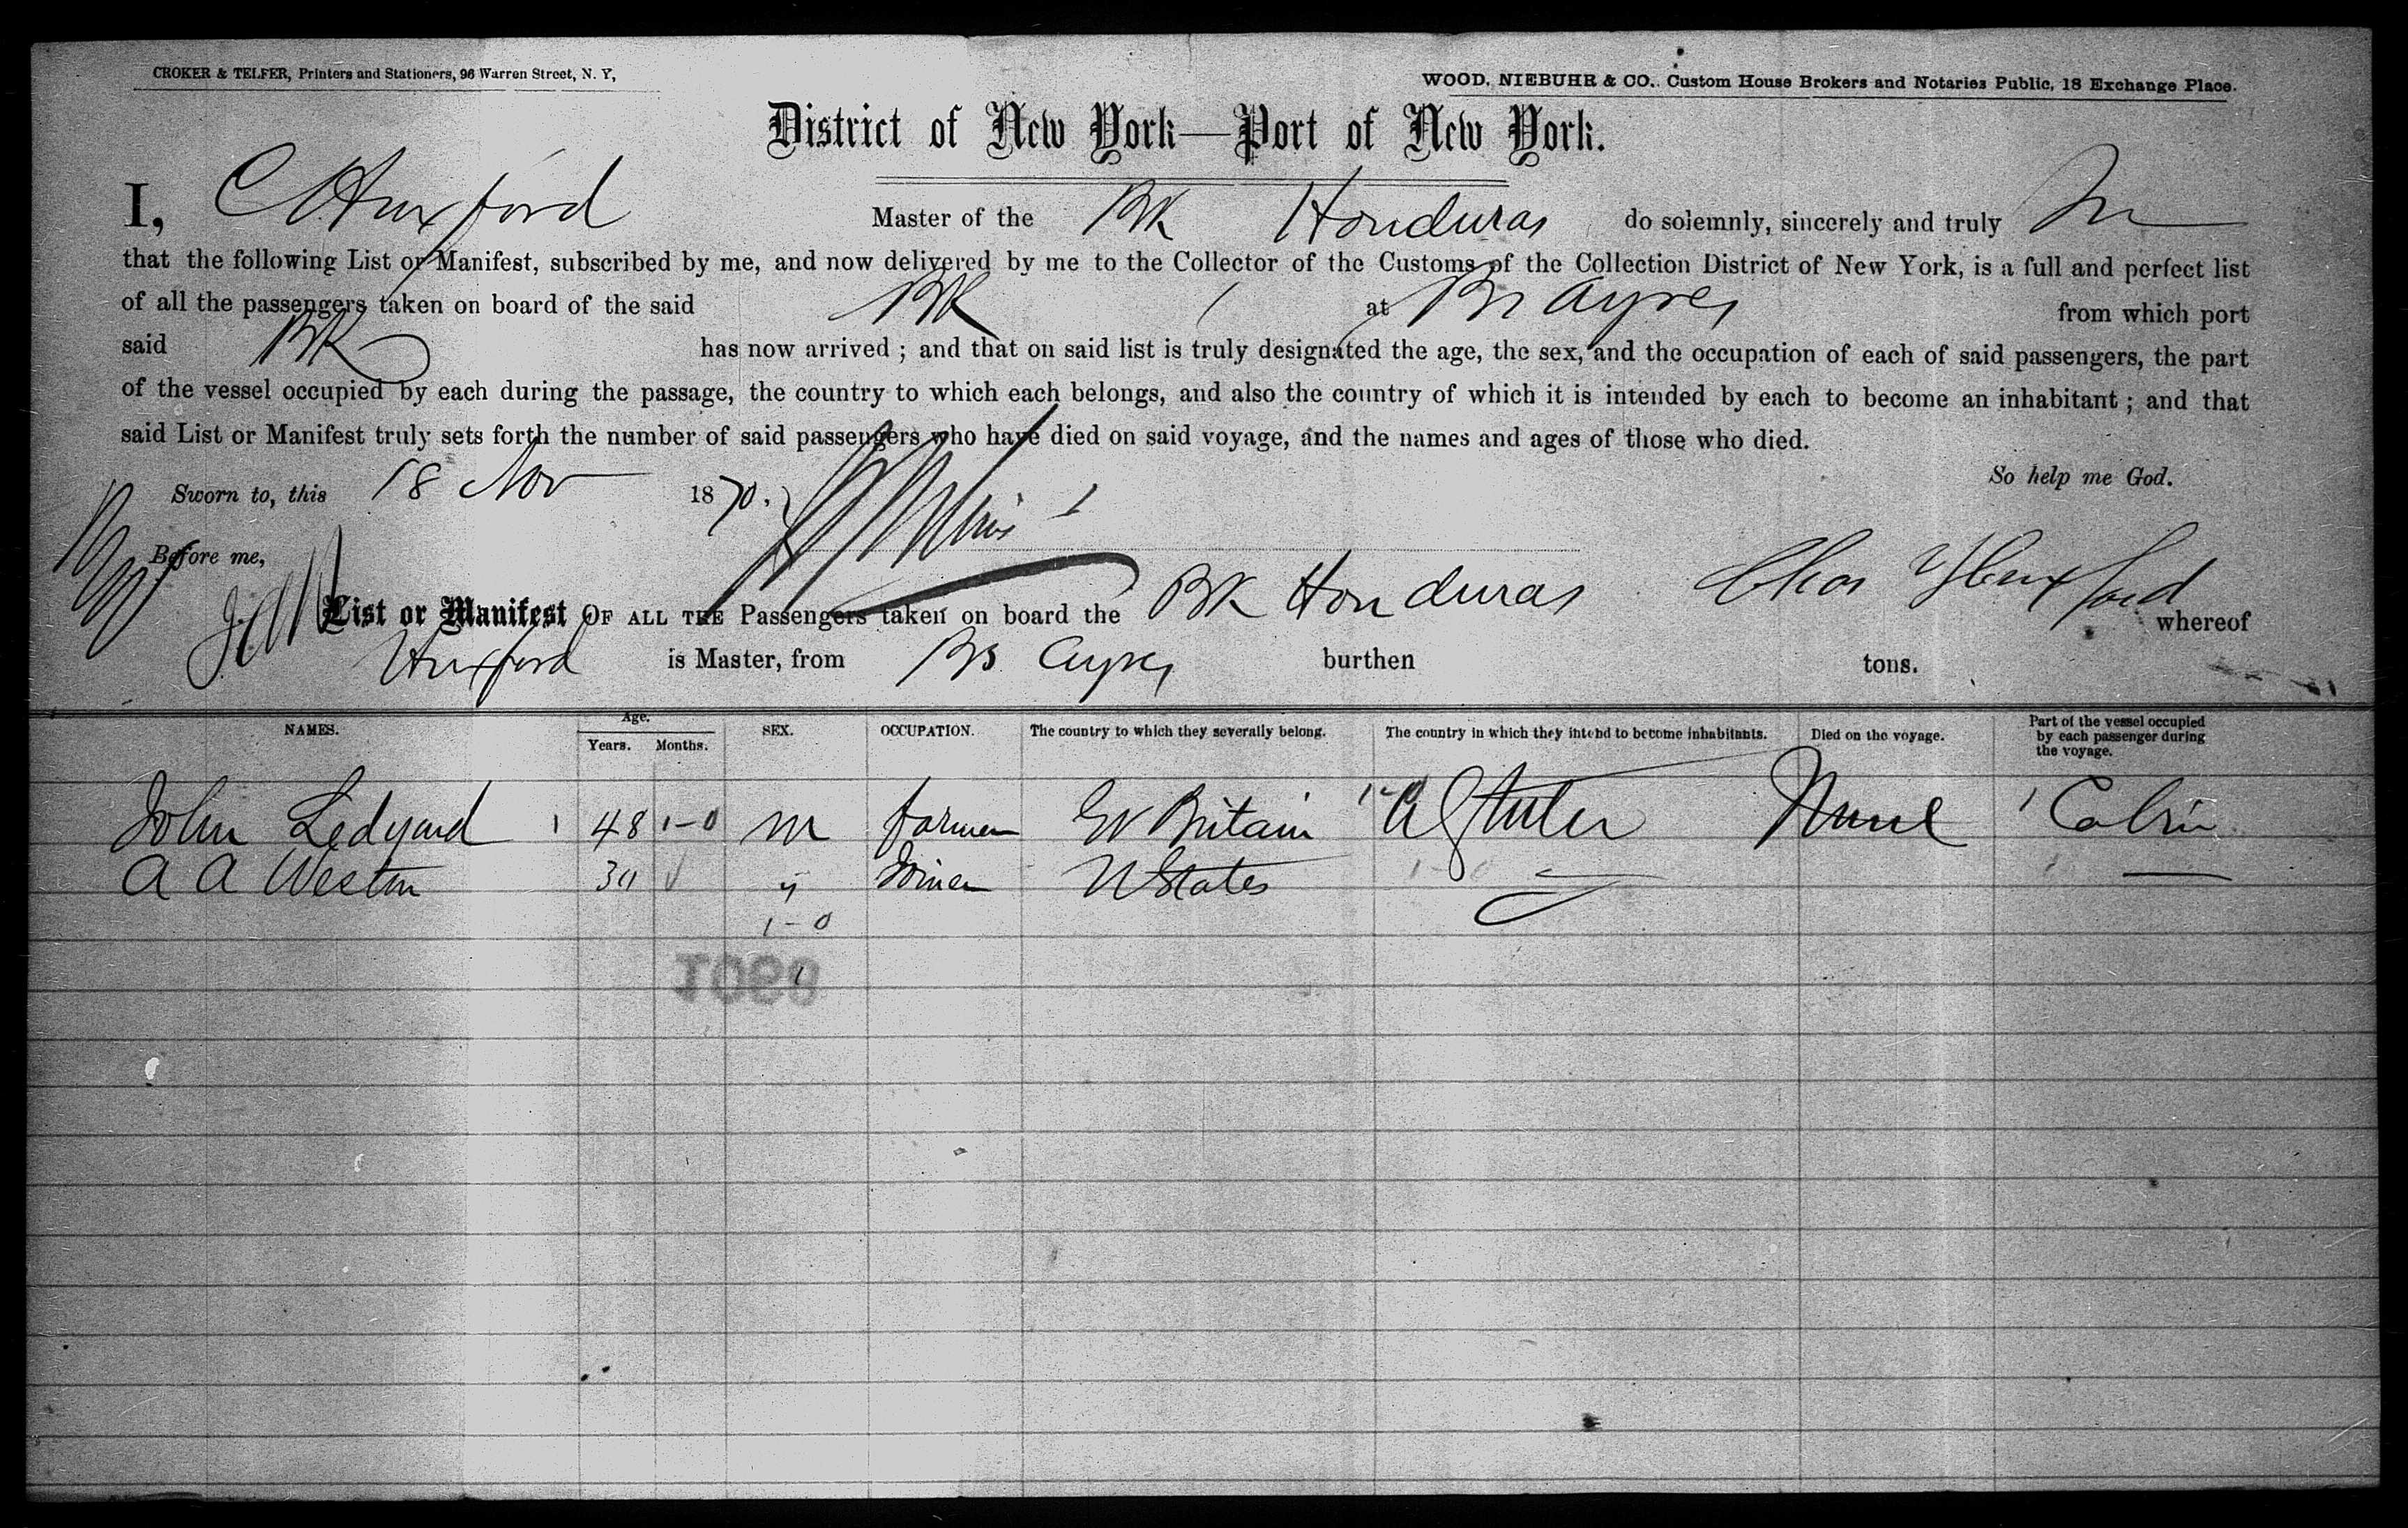 CROKER & TELFER, Printers and Stationers, 96 Warren Street, N. Y,
WOOD, NIEBUHR & CO., Custom House Brokers and Notaries Public, 18 Exchange Place.
District of New York—Port of New York.
I, C Huxford Master of the Bk Honduras do solemnly, sincerely and truly
that the following List or Manifest, subscribed by me, and now delivered by me to the Collector of the Customs of the Collection District of New York, is a full and perfect list
of all the passengers taken on board of the said Bk at Bs Ayres from which port
said Bk has now arrived ; and that on said list is truly designated the age, the sex, and the occupation of each of said passengers, the part
of the vessel occupied by each during the passage, the country to which each belongs, and also the country of which it is intended by each to become an inhabitant ; and that
said List or Manifest truly sets forth the number of said passengers who have died on said voyage, and the names and ages of those who died.
So help me God.
Sworn to, this 18 Nov 1870.
Before me,
Chas Huxford
List or Manifest OF ALL THE Passengers taken on board the Bk Honduras whereof
Huxford is Master, from Bs Ayres burthen tons.
NAMES. Age. Years. Months. SEX. OCCUPATION. The country to which they severally belong. The country in which they intend to become inhabitants. Died on the voyage. Part of the vessel occupied by each passenger during the voyage.
John Ledyard 1 48 1-0 m farmer Gt Britain 1-0 None 1 Cabin
A A Weston 30 " Joiner U States 1-0
1-0
1060